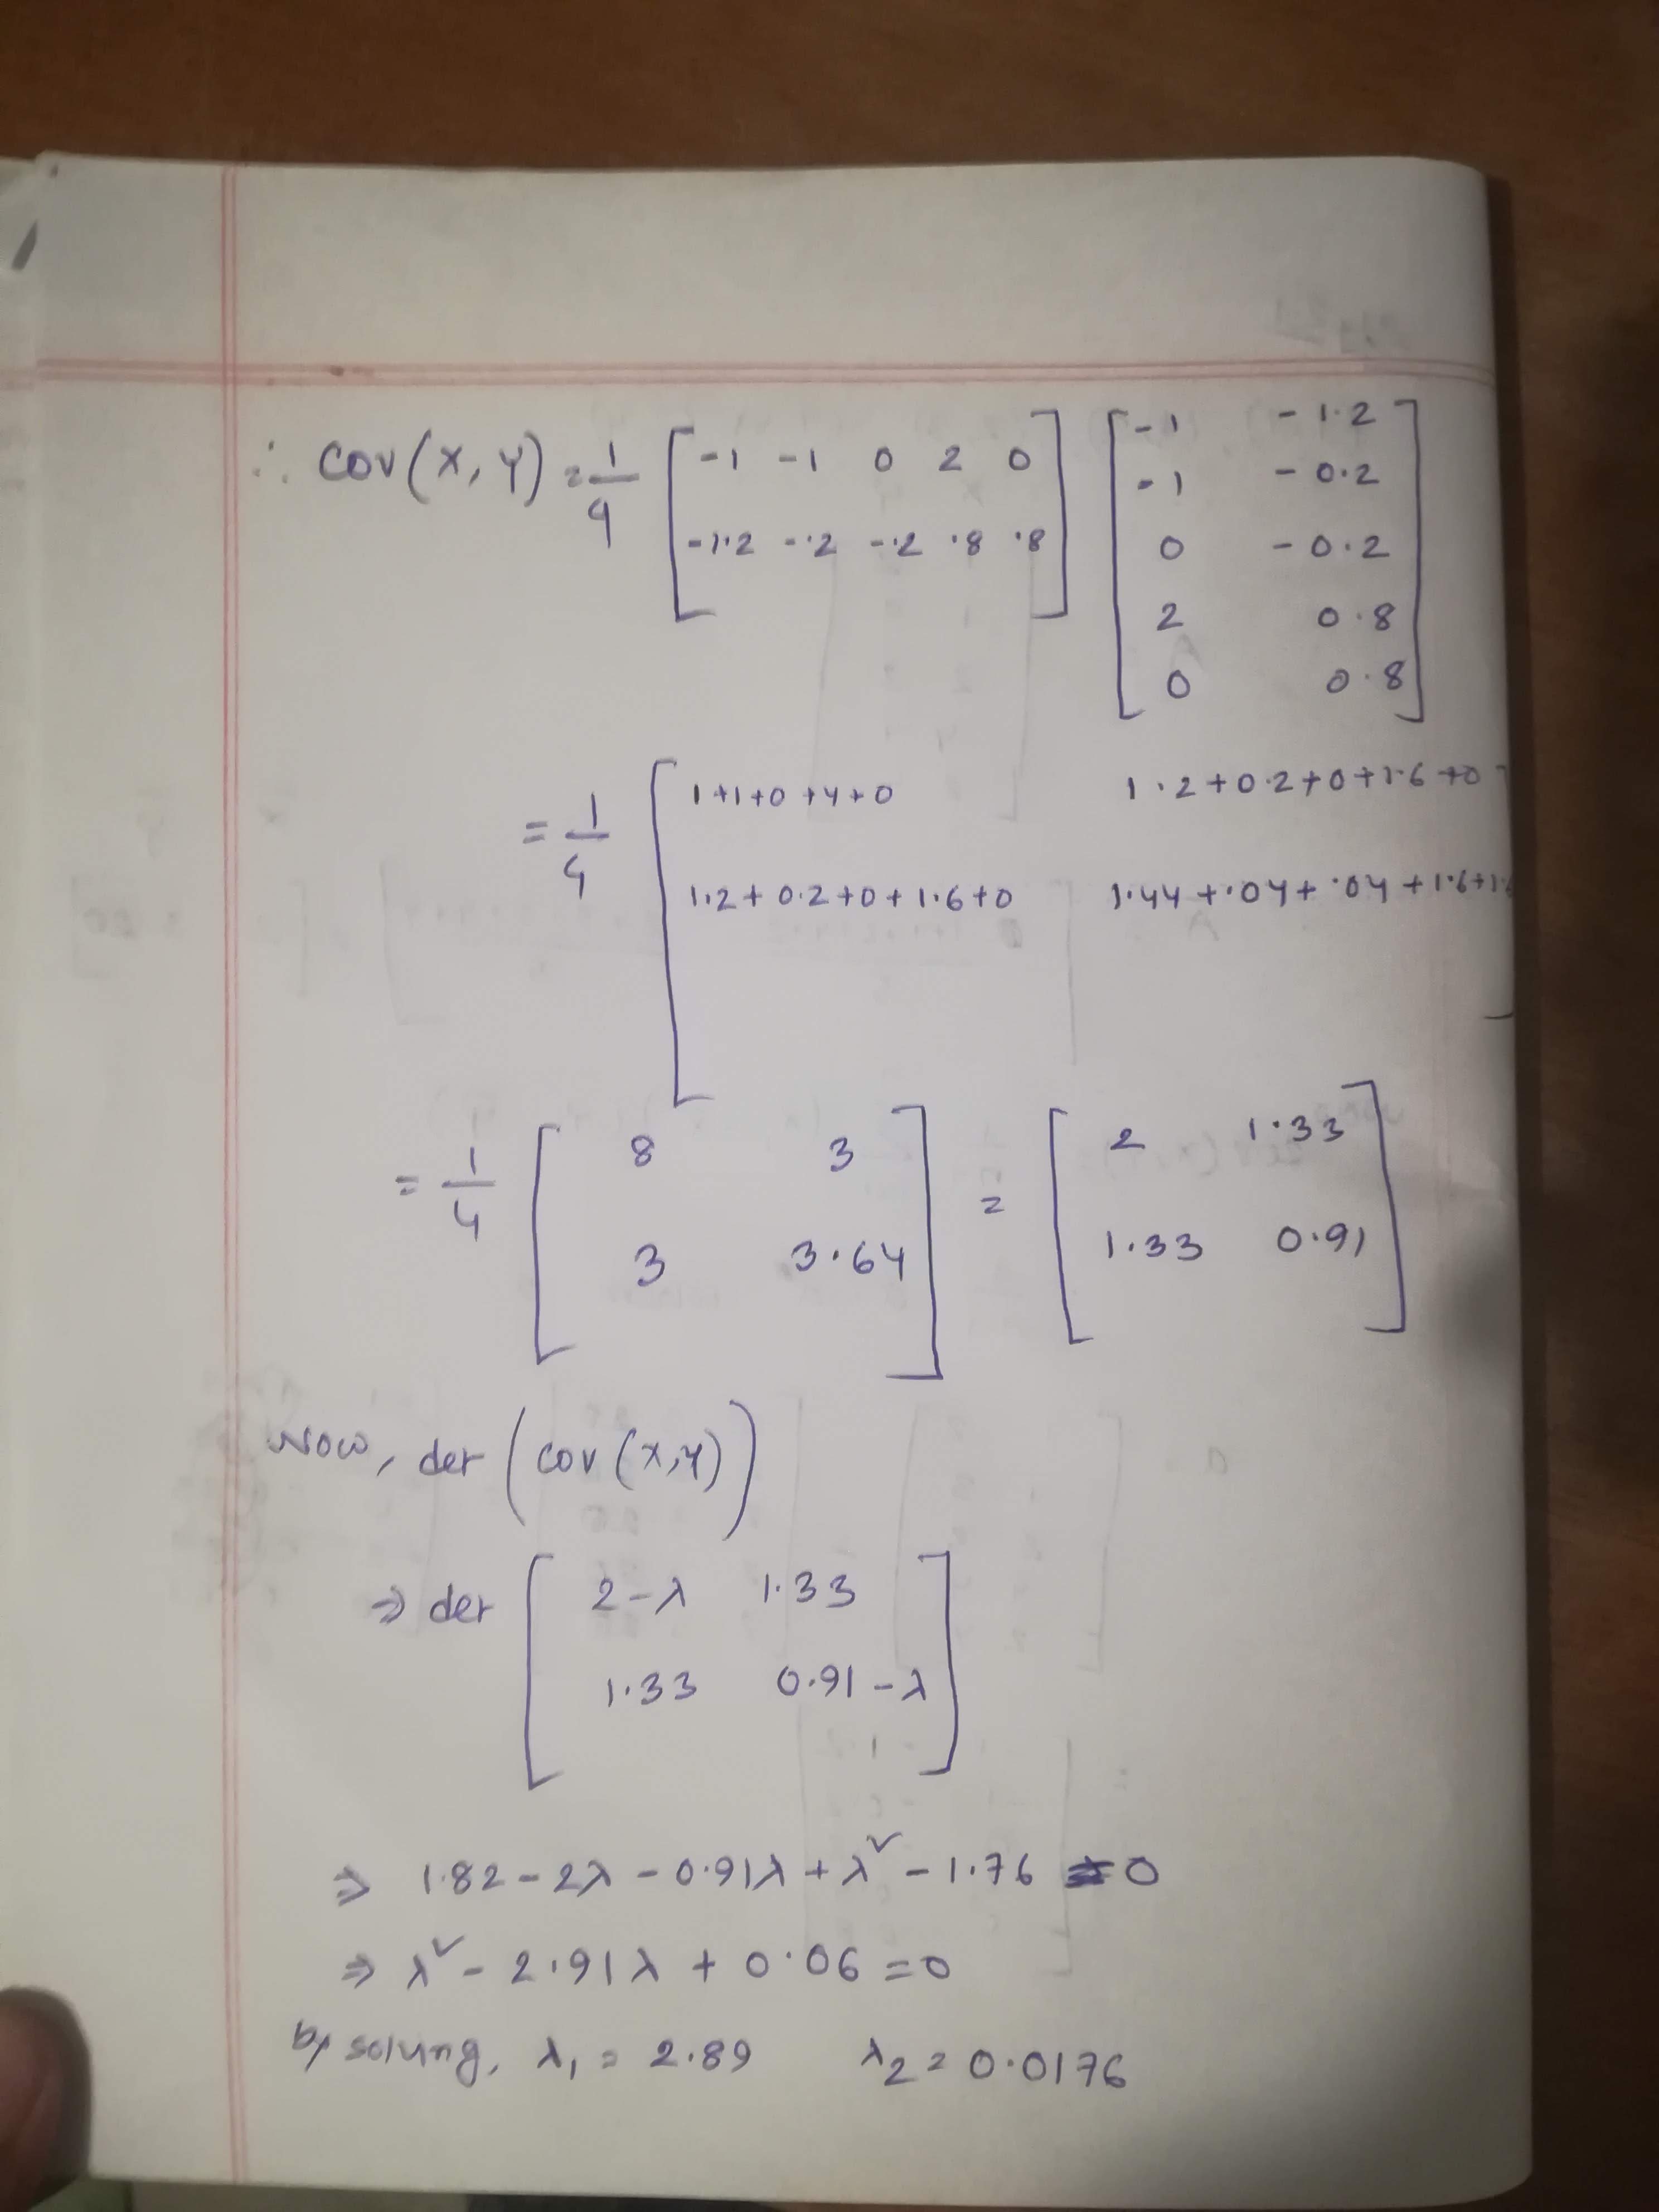 ∴ cov(x, y) = 1/4 [ -1 -1 0 2 0 ; -1.2 -.2 -.2 .8 .8 ] [ -1 -1.2 ; -1 -0.2 ; 0 -0.2 ; 2 0.8 ; 0 0.8 ]
= 1/4 [ 1+1+0+4+0 1.2+0.2+0+1.6+0 ; 1.2+0.2+0+1.6+0 1.44+.04+.04+1.6+1.6 ]
= 1/4 [ 8 3 ; 3 3.64 ] = [ 2 1.33 ; 1.33 0.91 ]
Now, det (cov(x,y))
⇒ det [ 2-λ 1.33 ; 1.33 0.91-λ ]
⇒ 1.82 - 2λ - 0.91λ + λ² - 1.76 = 0
⇒ λ² - 2.91λ + 0.06 = 0
by solung, λ₁ = 2.89 λ₂ = 0.0176